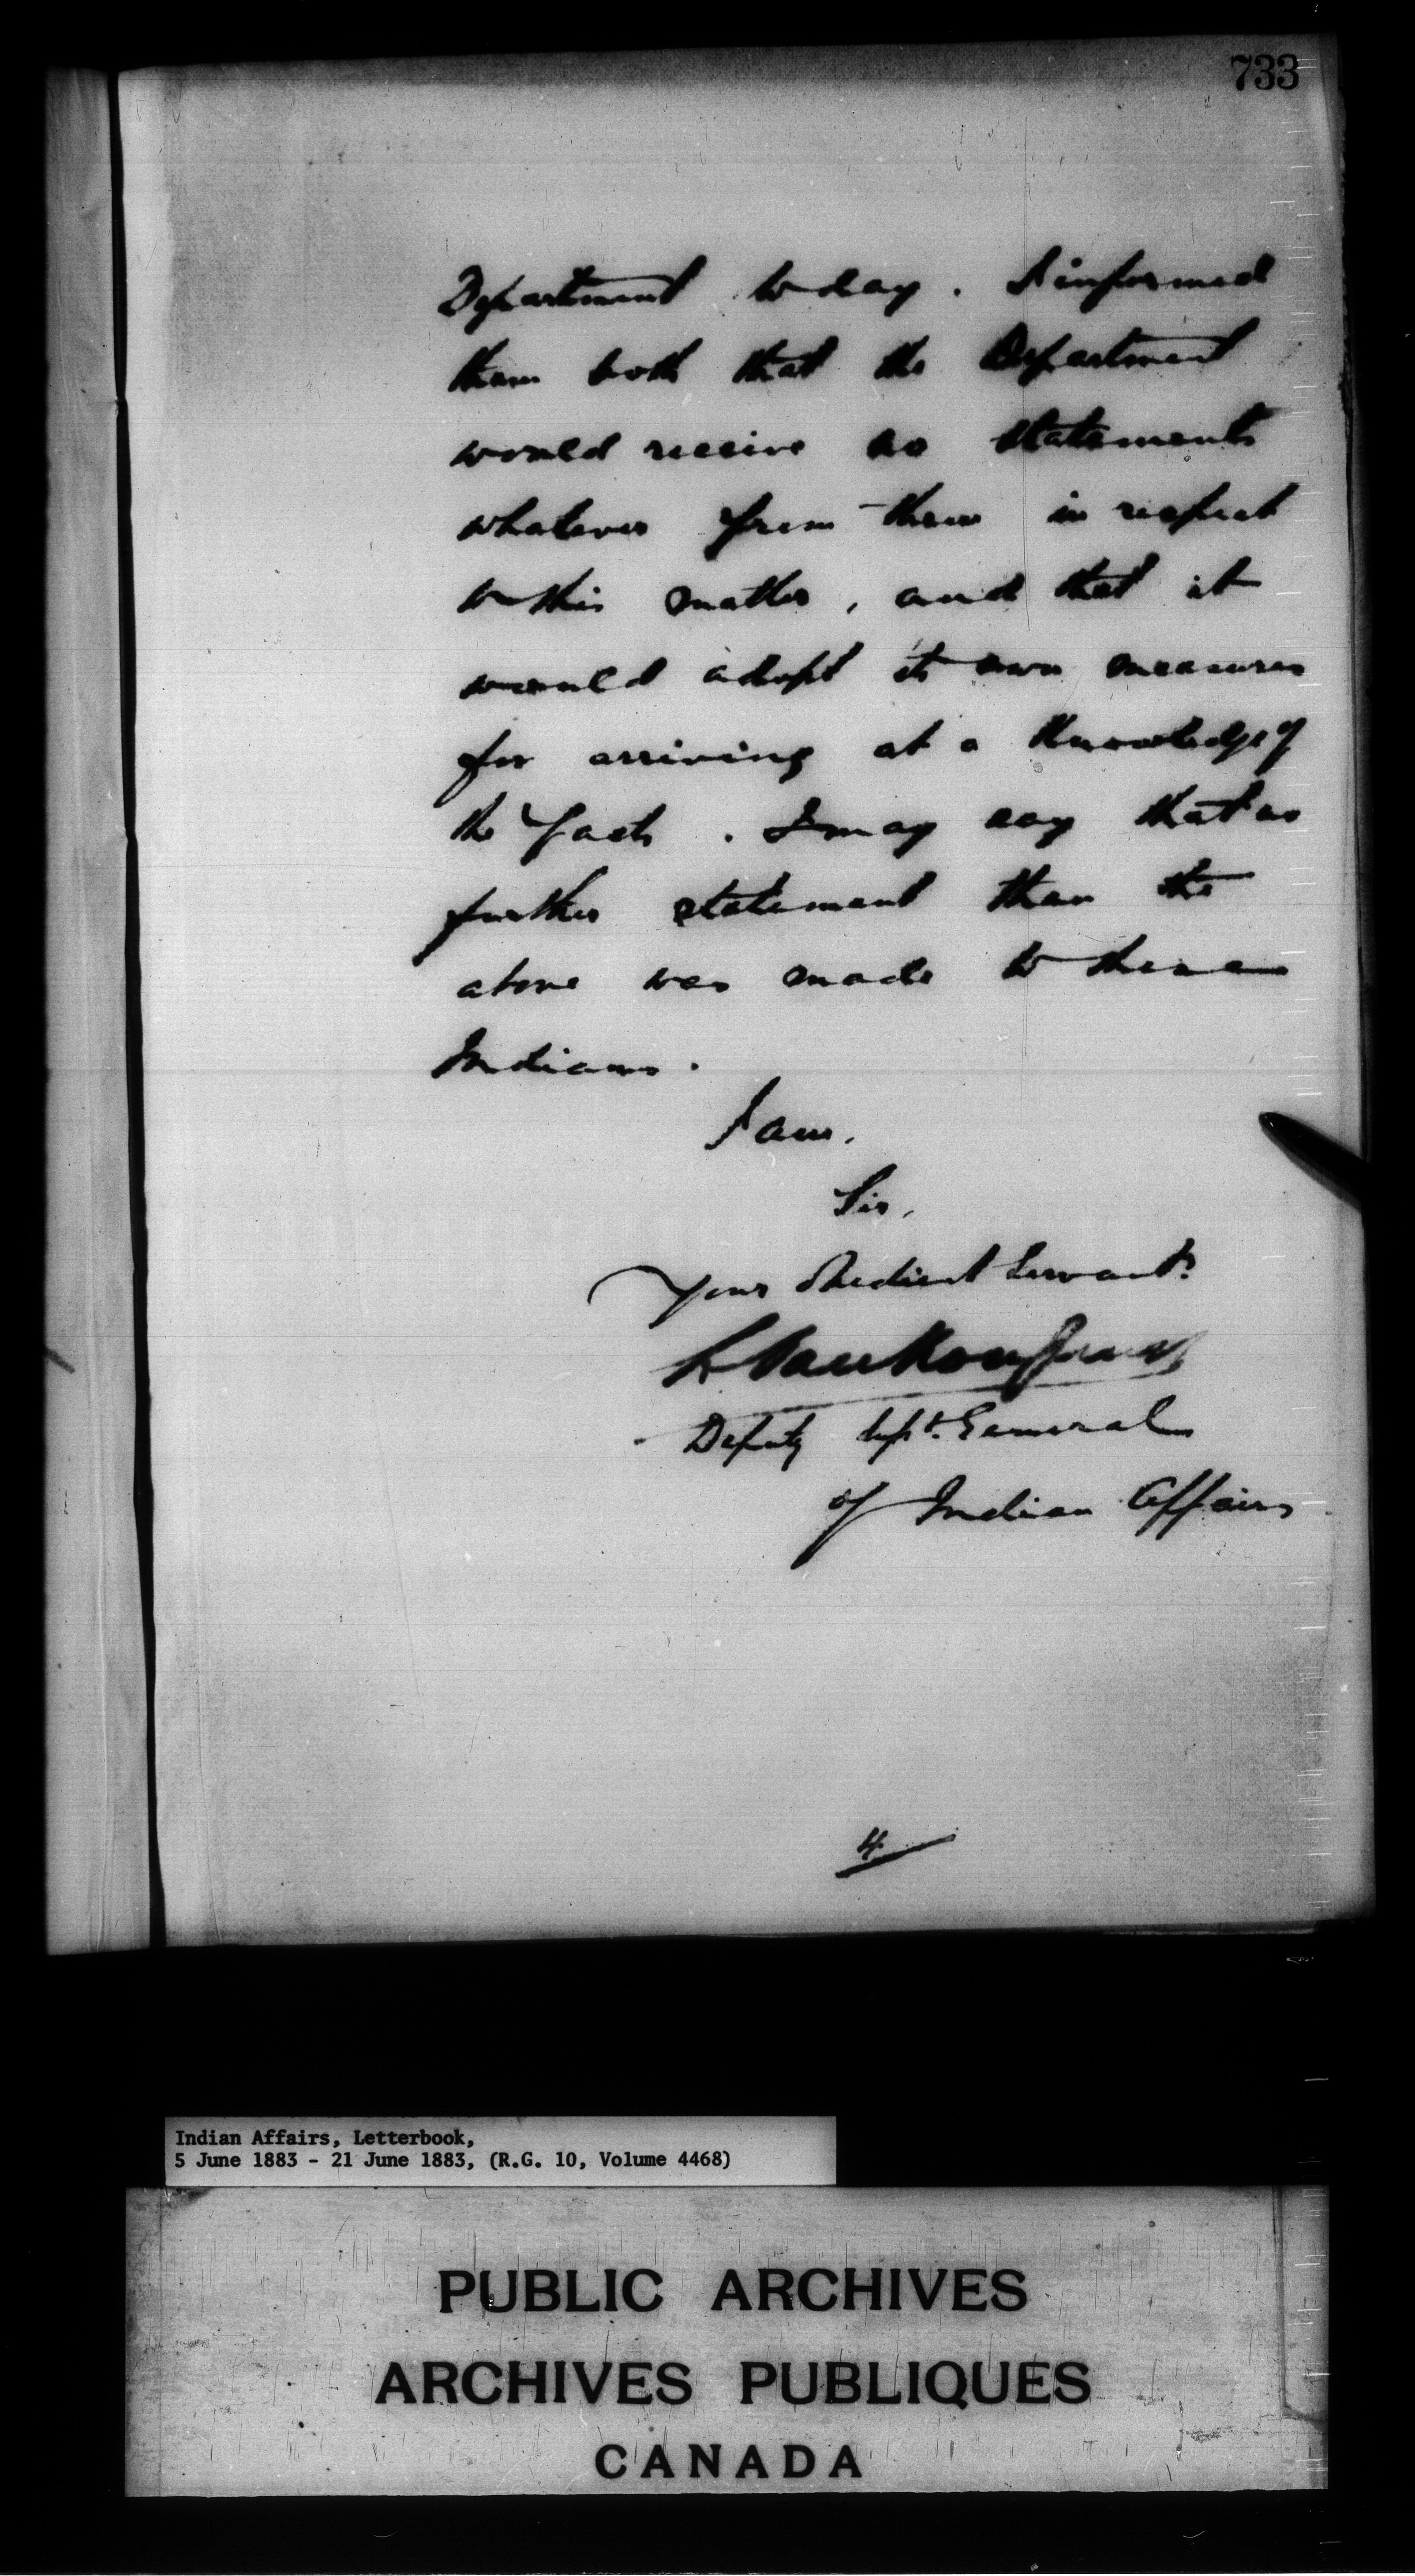 733
Department today. I informed
them both that the Department
would receive no statements
whatever from them in respect
to this matter, and that it
would adopt its own measures
for arriving at a knowledge of
the facts. I may say that no
further statement than the
above was made to these
Indians.
I am,
Sir,
Your Obedient Servant
L Vankoughnet
Deputy Supt. General
of Indian Affairs
4
Indian Affairs, Letterbook,
5 June 1883 - 21 June 1883, (R.G. 10, Volume 4468)
PUBLIC ARCHIVES
ARCHIVES PUBLIQUES
CANADA